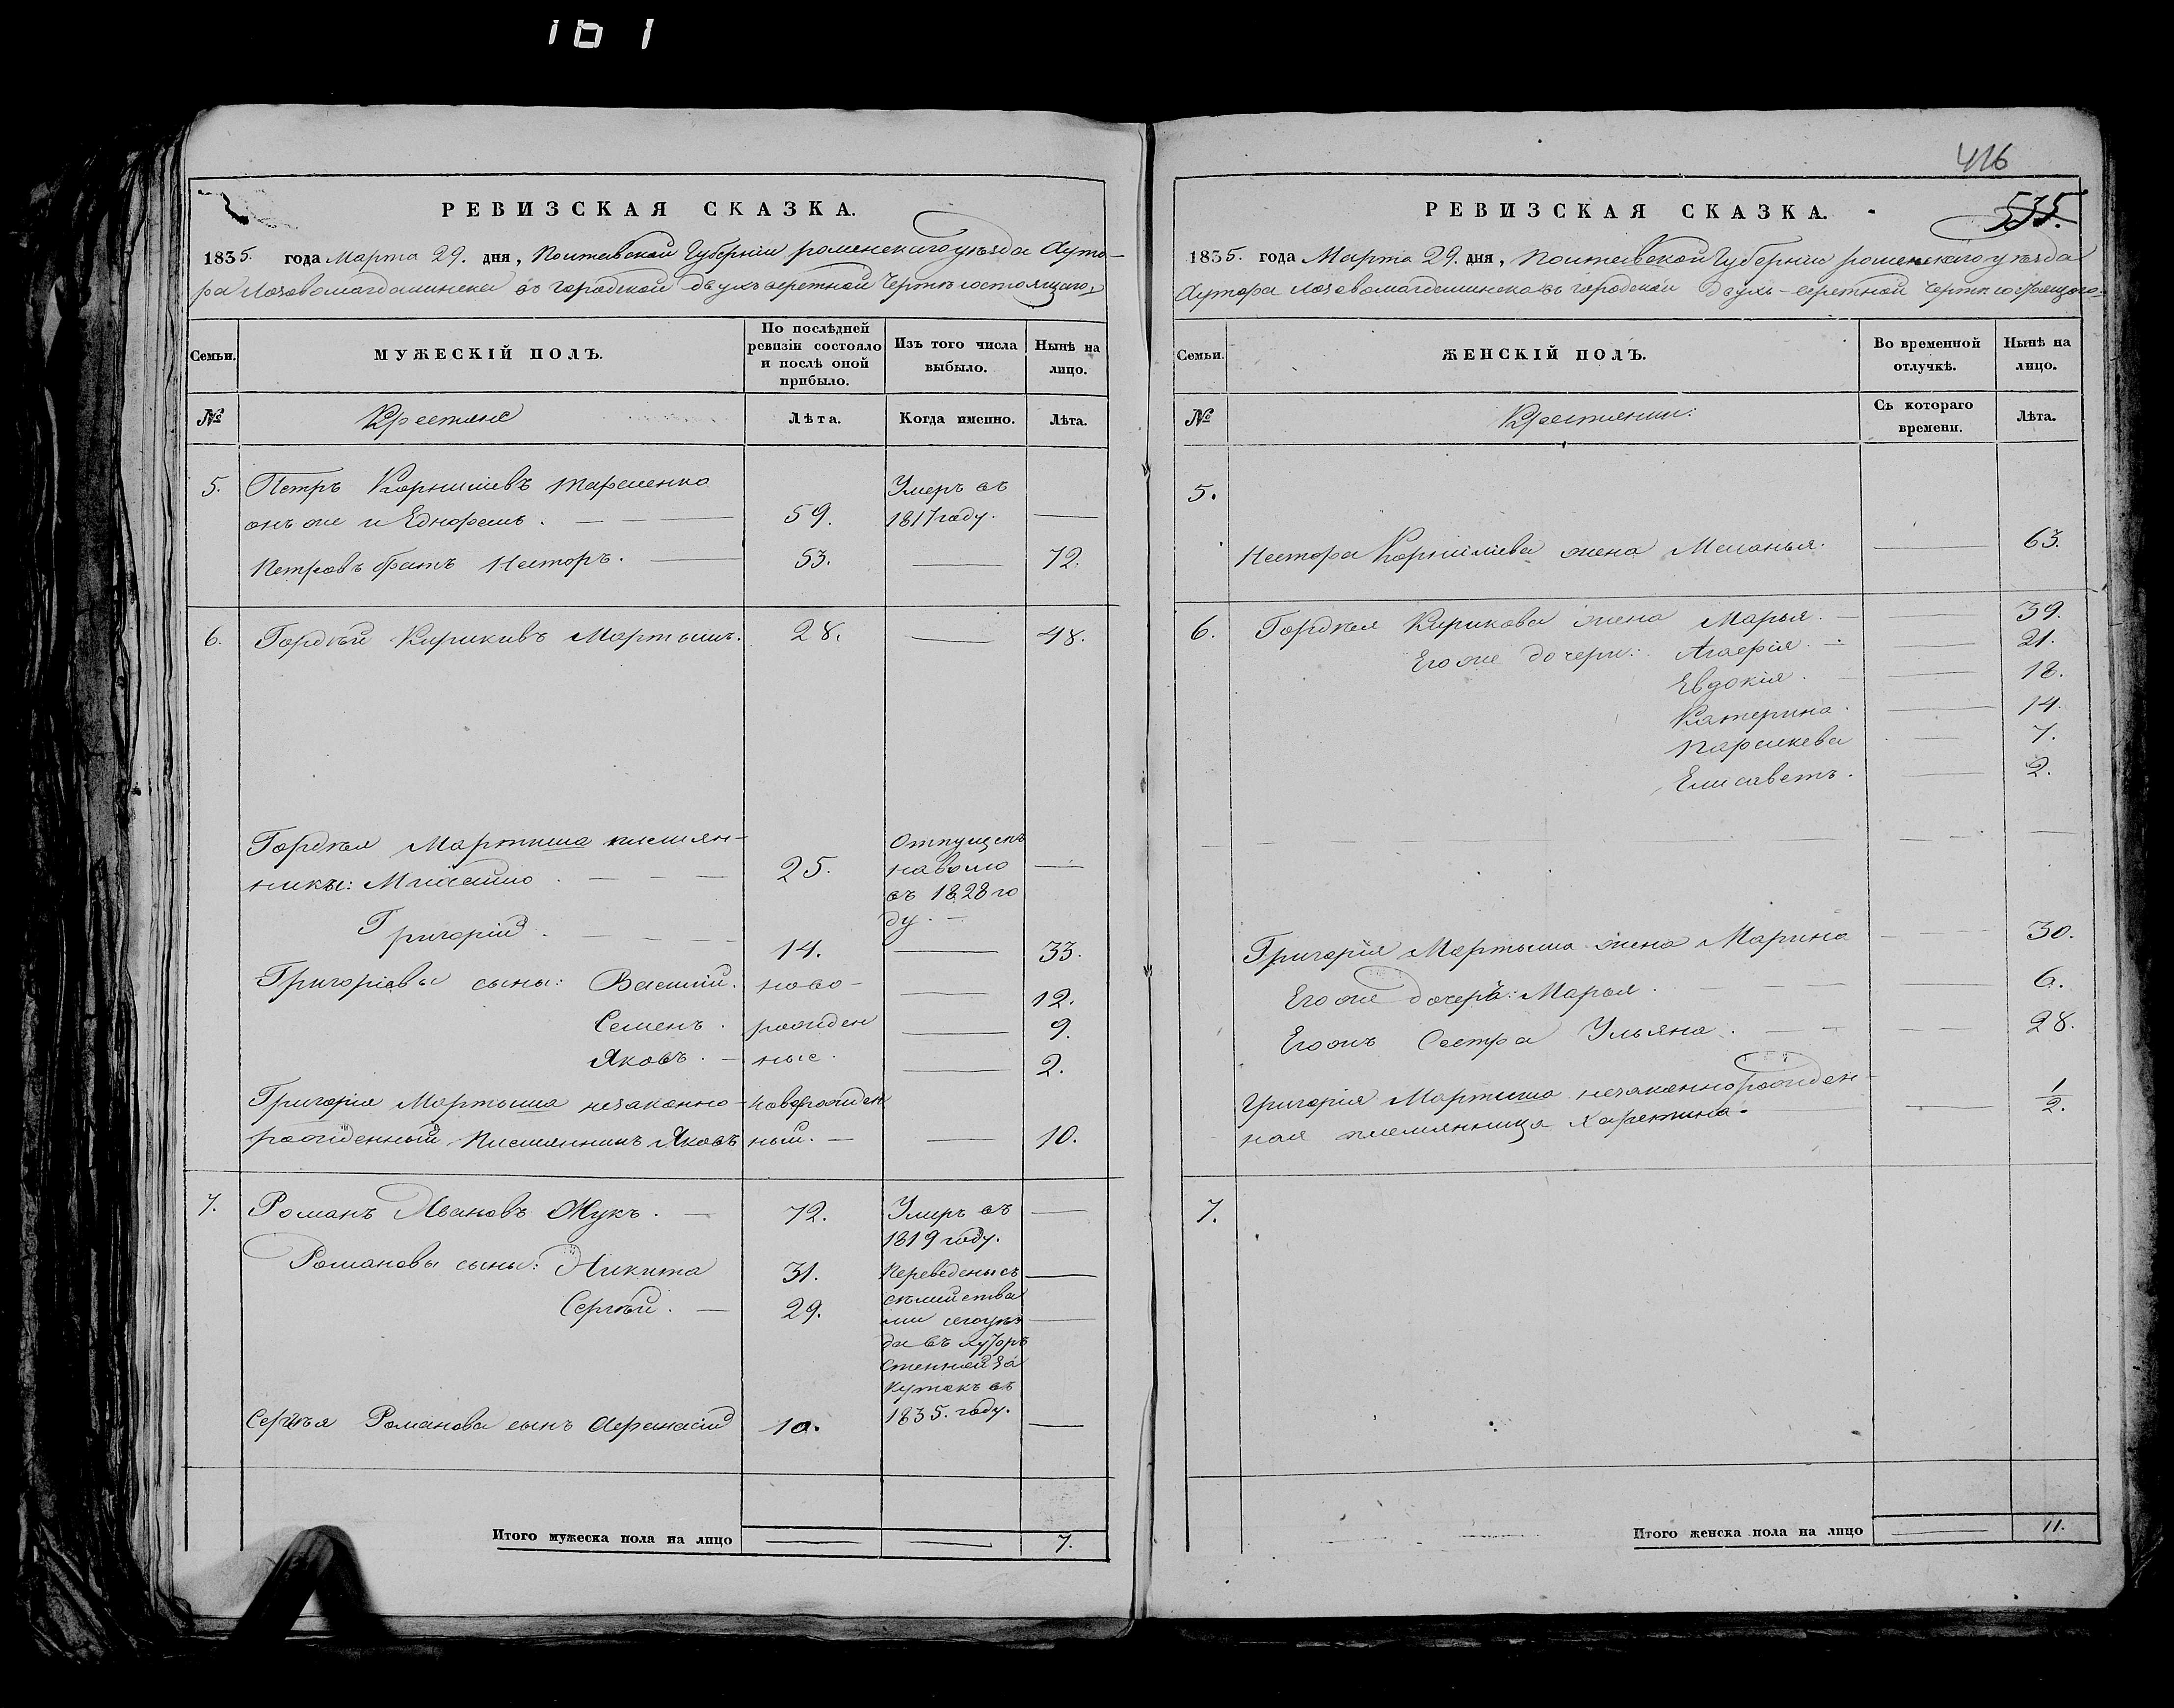 161
РЕВИЗСКАЯ СКАЗКА.
1835. года Марта 29. дня, Полтавской Губерніи роменского уѣзда Хуто-
ра Лозовомагдалинска въ городской двухъ верстной чертѣ состоящаго
Семьи.
МУЖЕСКІЙ ПОЛЪ.
По послѣдней
ревизіи состояло
и послѣ оной
прибыло.
Изъ того числа
выбыло.
Нынѣ на
лицо.
№
Крестяне
Лѣта.
Когда именно.
Лѣта.
5. Петръ Корниліевъ Тараненко
Умеръ въ
онъ же и 59. 1817 году.
Петровъ братъ Несторъ. 53. 72.
6. Гордѣй Кириковъ Мартышъ. 28. 48.
Гордѣя Мартыша племян-
ники: Михайло 25.
Отпущенъ
наволю
въ 1828 го
ду.
Григорій 14. 33.
Григоріевы сыны: Василій. ново- 12.
Семенъ. рожден 9.
Яковъ. ные. 2.
Григорія Мартыша незаконно- новорожден
рожденный племянникъ Яковъ ный. 10.
7. Романъ Ивановъ Жукъ. 72. Умеръ въ
1819 году.
Романовы сыны: Никита 31.
Сергѣй. 29.
Переведены съ
сѣмийства
ми сегоуѣз
да въ хуторъ
Степной За
кутокъ въ
1835. году.
Сергѣя Романова сынъ Афанасій 10.
Итого мужеска пола на лицо 7.
416
535.
РЕВИЗСКАЯ СКАЗКА.
1835. года Марта 29. дня, Полтавской Губерніи роменского уѣзда
Хутора Лозовомагдалинска въ городской двухъ-верстной чертѣ состоящаго
Семьи.
ЖЕНСКІЙ ПОЛЪ.
Во временной
отлучкѣ.
Нынѣ на
лицо.
№
Крестянки:
Съ котораго
времени.
Лѣта.
5.
Нестора Корниліева жена Меланья. 63.
6. Гордѣя Кирикова жена Марья. 39.
Его же дочери: Агафія. 21.
Евдокія. 18.
Катерина. 14.
Параскева 7.
Елисаветъ. 2.
Григорія Мартыша жена Марина 30.
Его же дочерь: Марья. 6.
Егожъ Сестра Ульяна. 28.
Григорія Мартыша незаконнорожден-
ная племянница Харитина. 1/2.
7.
Итого женска пола на лицо 11.